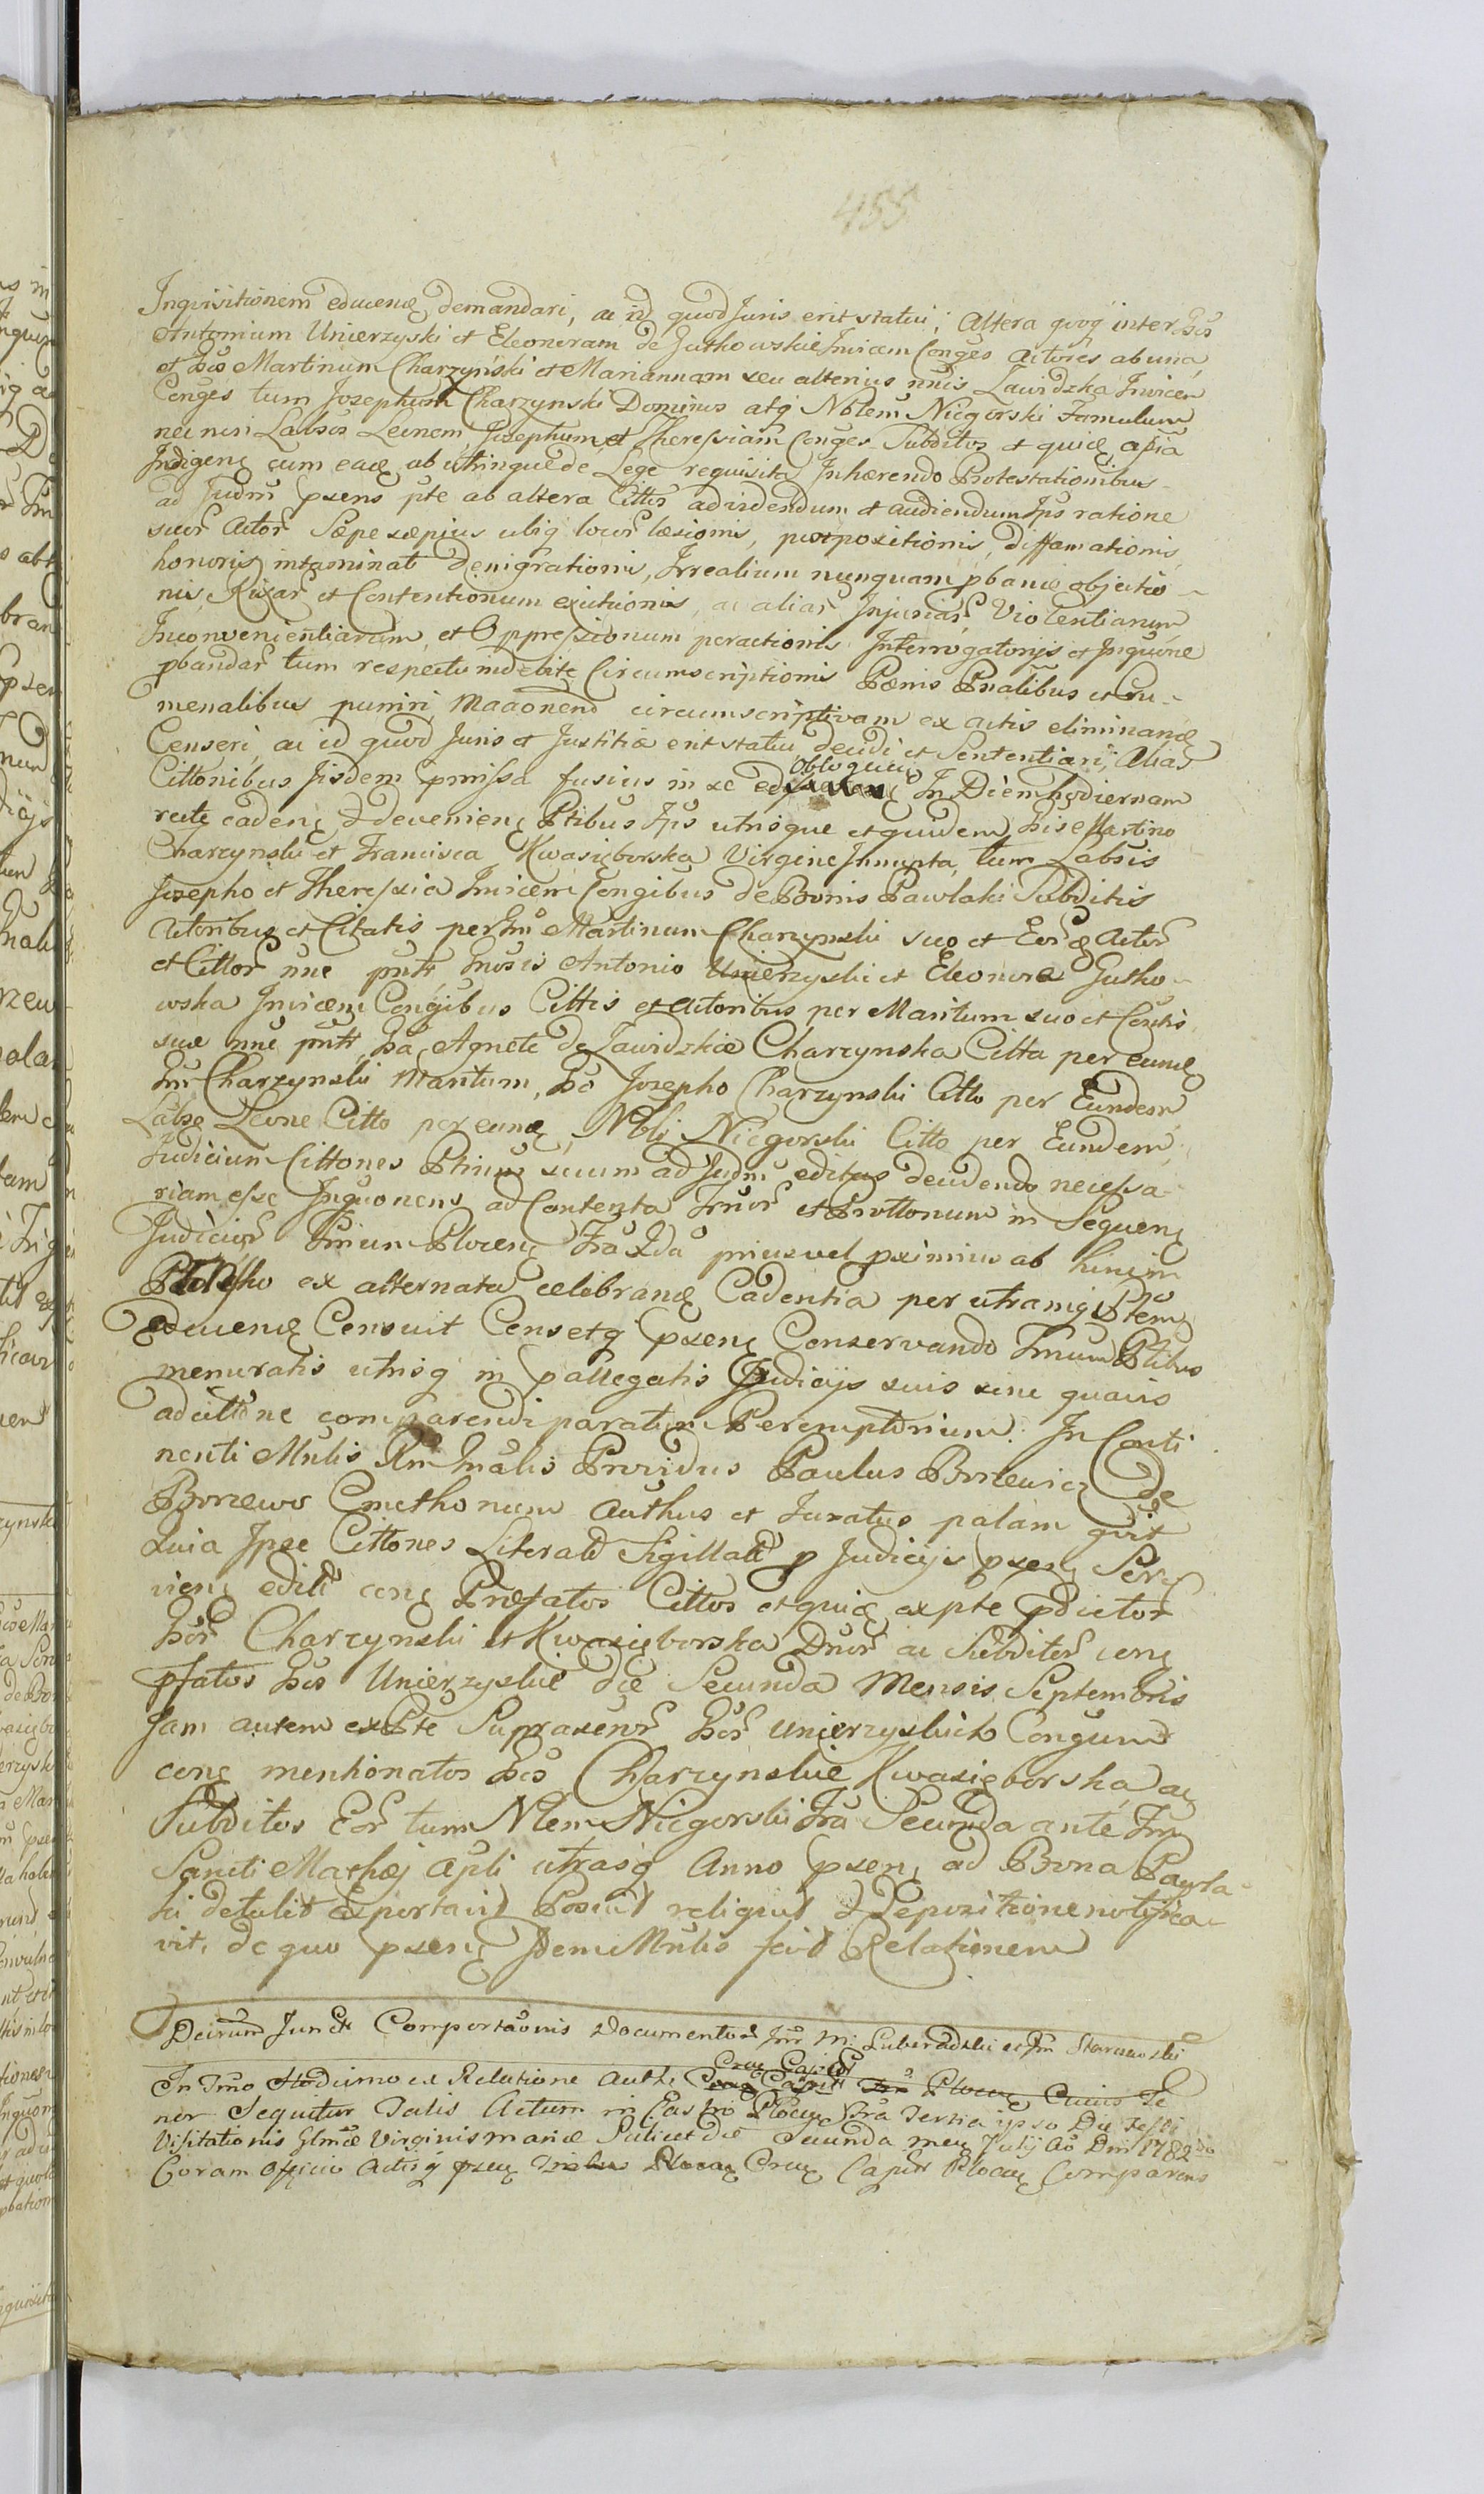 455
Inquisitionem educenđ demandari, ac id quod Juris erit statui; Altera quoq inter Gsos
Antonium Unierzyski et Eleonoram de Gutkowskie Invicem Conges Actores ab una
et Gsos Martinum Charzyński et Mariannam seu alterius nnis Zawidzka Invicem
Conges tum Josephum Charzynski Dominos atq Nblem Niegorski Famulum
nec non Labsos Leonem, Josephum et Theressiam Conges Subditos et quidę
Indigenę cum eadę ab utrinque de Lege requisita Inhærendo Protestationibus
ad Judm pxens pte ab altera Cittos ad videndum et audiendum Ipsis ratione
suor Actor Sæpe sæpius ubiq locor læsionis, postpositionis, diffamationis
honoris intaminat denigrationis, Irrealium nunquam pbandę objectio
nis, Rixar et Contentionum excitionis, ac aliar Injuriar, Violentiarum
Inconvenientiarum et Oppressionum peractionis Interrogatorijs et Inquone
pbandar tum respectu indebite Circumscriptionis Pænis Pnalibus et Cri
menalibus puniri, circumscriptivam ex actis eliminandę
Censeri, ac id quod Juris et Justitiæ erit statui decidi et Sententiari; Alias
Cittonibus Iisdem pmissa fusius in se obloquen In Diem hodiernam
recte cadenę & devenienę Ptibus Ipsis utrisque et quidem Gsis Martino
Charzynski et Francisca Kwasięborska Virgine Innupta, tum Labsis
Josepho et Theressia Invicem Congibus de Bonis Pawłaki Subditis
Actoribus et Citatis per Martinum Charzynski suo et Eor Actor
et Cittor nne pntt Gnosis Antonio Unierzyski et Eleonora Gutko
wska Invicem Congibus Cittis et Actoribus per Maritum suo et Contis
suæ nne pntt, Gsa Agnete de Zawidzkie Charzynska Citta per eundę
Charzynski Maritum, Gso Josepho Charzynski Citto per Eundem
Labso Leone Citto per eundę, Nbli Niegorski Citto per Eundem,
Judicium Cittones Ptium suum ad Judm editas decidendo necessa
riam esse Inquonem ad Contenta et Prottonum in Sequenę
Judicior Tmum Plocenę Fra 2da prius vel pximius ab hinc in
Płońsko ex alternata celebrandę Cadentia per utramq Ptem
Educendę Censuit Censetq pxenę Conservando Tmum Ptibus
memoratis utrisq in pallegatis Judicijs suis sine quavis
adcittone comparendi paratum Peremptorium. In Conti
nenti Mnlis Rn Gnalis Providus Paulus Borzewicz de
Borzewo Cmethonum Authus et Juratus palam gvit
Quia Ipse Cittones Literald Sigillatd p Judicijs pxenę Ser
vienę editd conę Præfatos Cittos et quidę ex pte pdictor
Gsor Charzynski et Kwasięborska Dnor ac Subditor conę
pfatos Gsos Unierzyskie die Secunda Mensis Septembris
Jam autem ex Pte Supraxenor Gsor Unierzyskich Congum
conę mentionatos Gsos Charzynskie Kwasięborska ac
Subditos Eor tum Nlem Niegorski Fra Secunda ante Ftm
Sancti Mathæj Apli utrasq Anno pxenę ad Bona Pawła
ki detulit Exportavit Posuit reliquit & Depozitione notifica
vit, de quo pxenę Idem Mnlis fecit Relationem
Decrum Junctt Comportaonis Documentor M: Luberadzki et Starzewski
In Tmo Hodierno ex Relatione Auth: Crenę Capitt Plocenę Cuius Te
nor Sequitur Talis Actum in Castro Plocenę Fra Tertia ipso Die Festi
Visitationis Glmæ Virginis Mariæ Scilicet die Secunda mens Julij Ao Dni 1782do
Coram Officio Actisq pxenę Crenę Capitt Plocenę Comparens